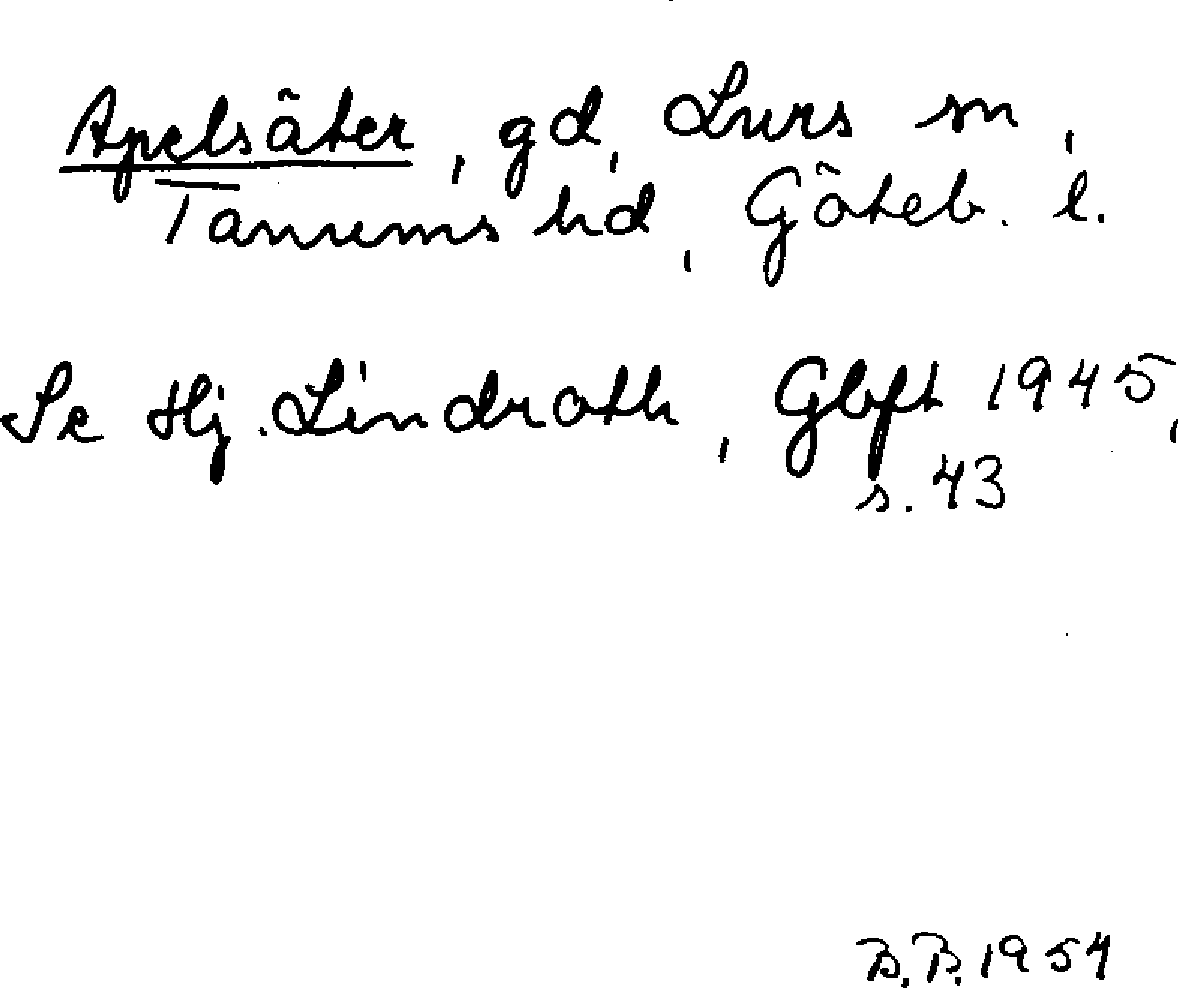 Apelsäter, gd, Lurs sn,
Tanums hd, Göteb. l.
Se Hj. Lindroth, Gbft 1945,
s. 43
B.B. 1954